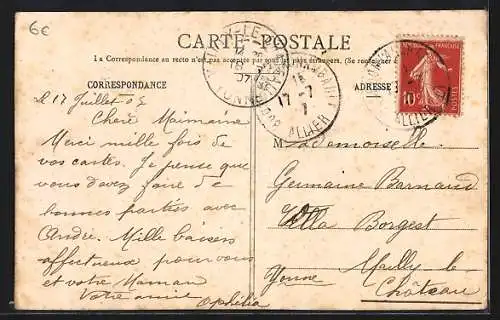 6€
CARTE POSTALE
La Correspondance au recto n'est pas acceptée par tous les pays étrangers. (Se renseigner à
CORRESPONDANCE
ADRESSE
YONNE
17 -7
ALLIER
10
POSTES
le 17 Juillet 07
Chère Mainaine
Merci mille fois de
vos cartes. Je pense que
vous devez faire de
bonnes parties avec
André. Mille baisers
affectueux pour vous
et votre Maman
Votre amie
Ophélia
Mademoiselle
Germaine Barnaud
Villa Borgest
Mailly le
Château
Yonne